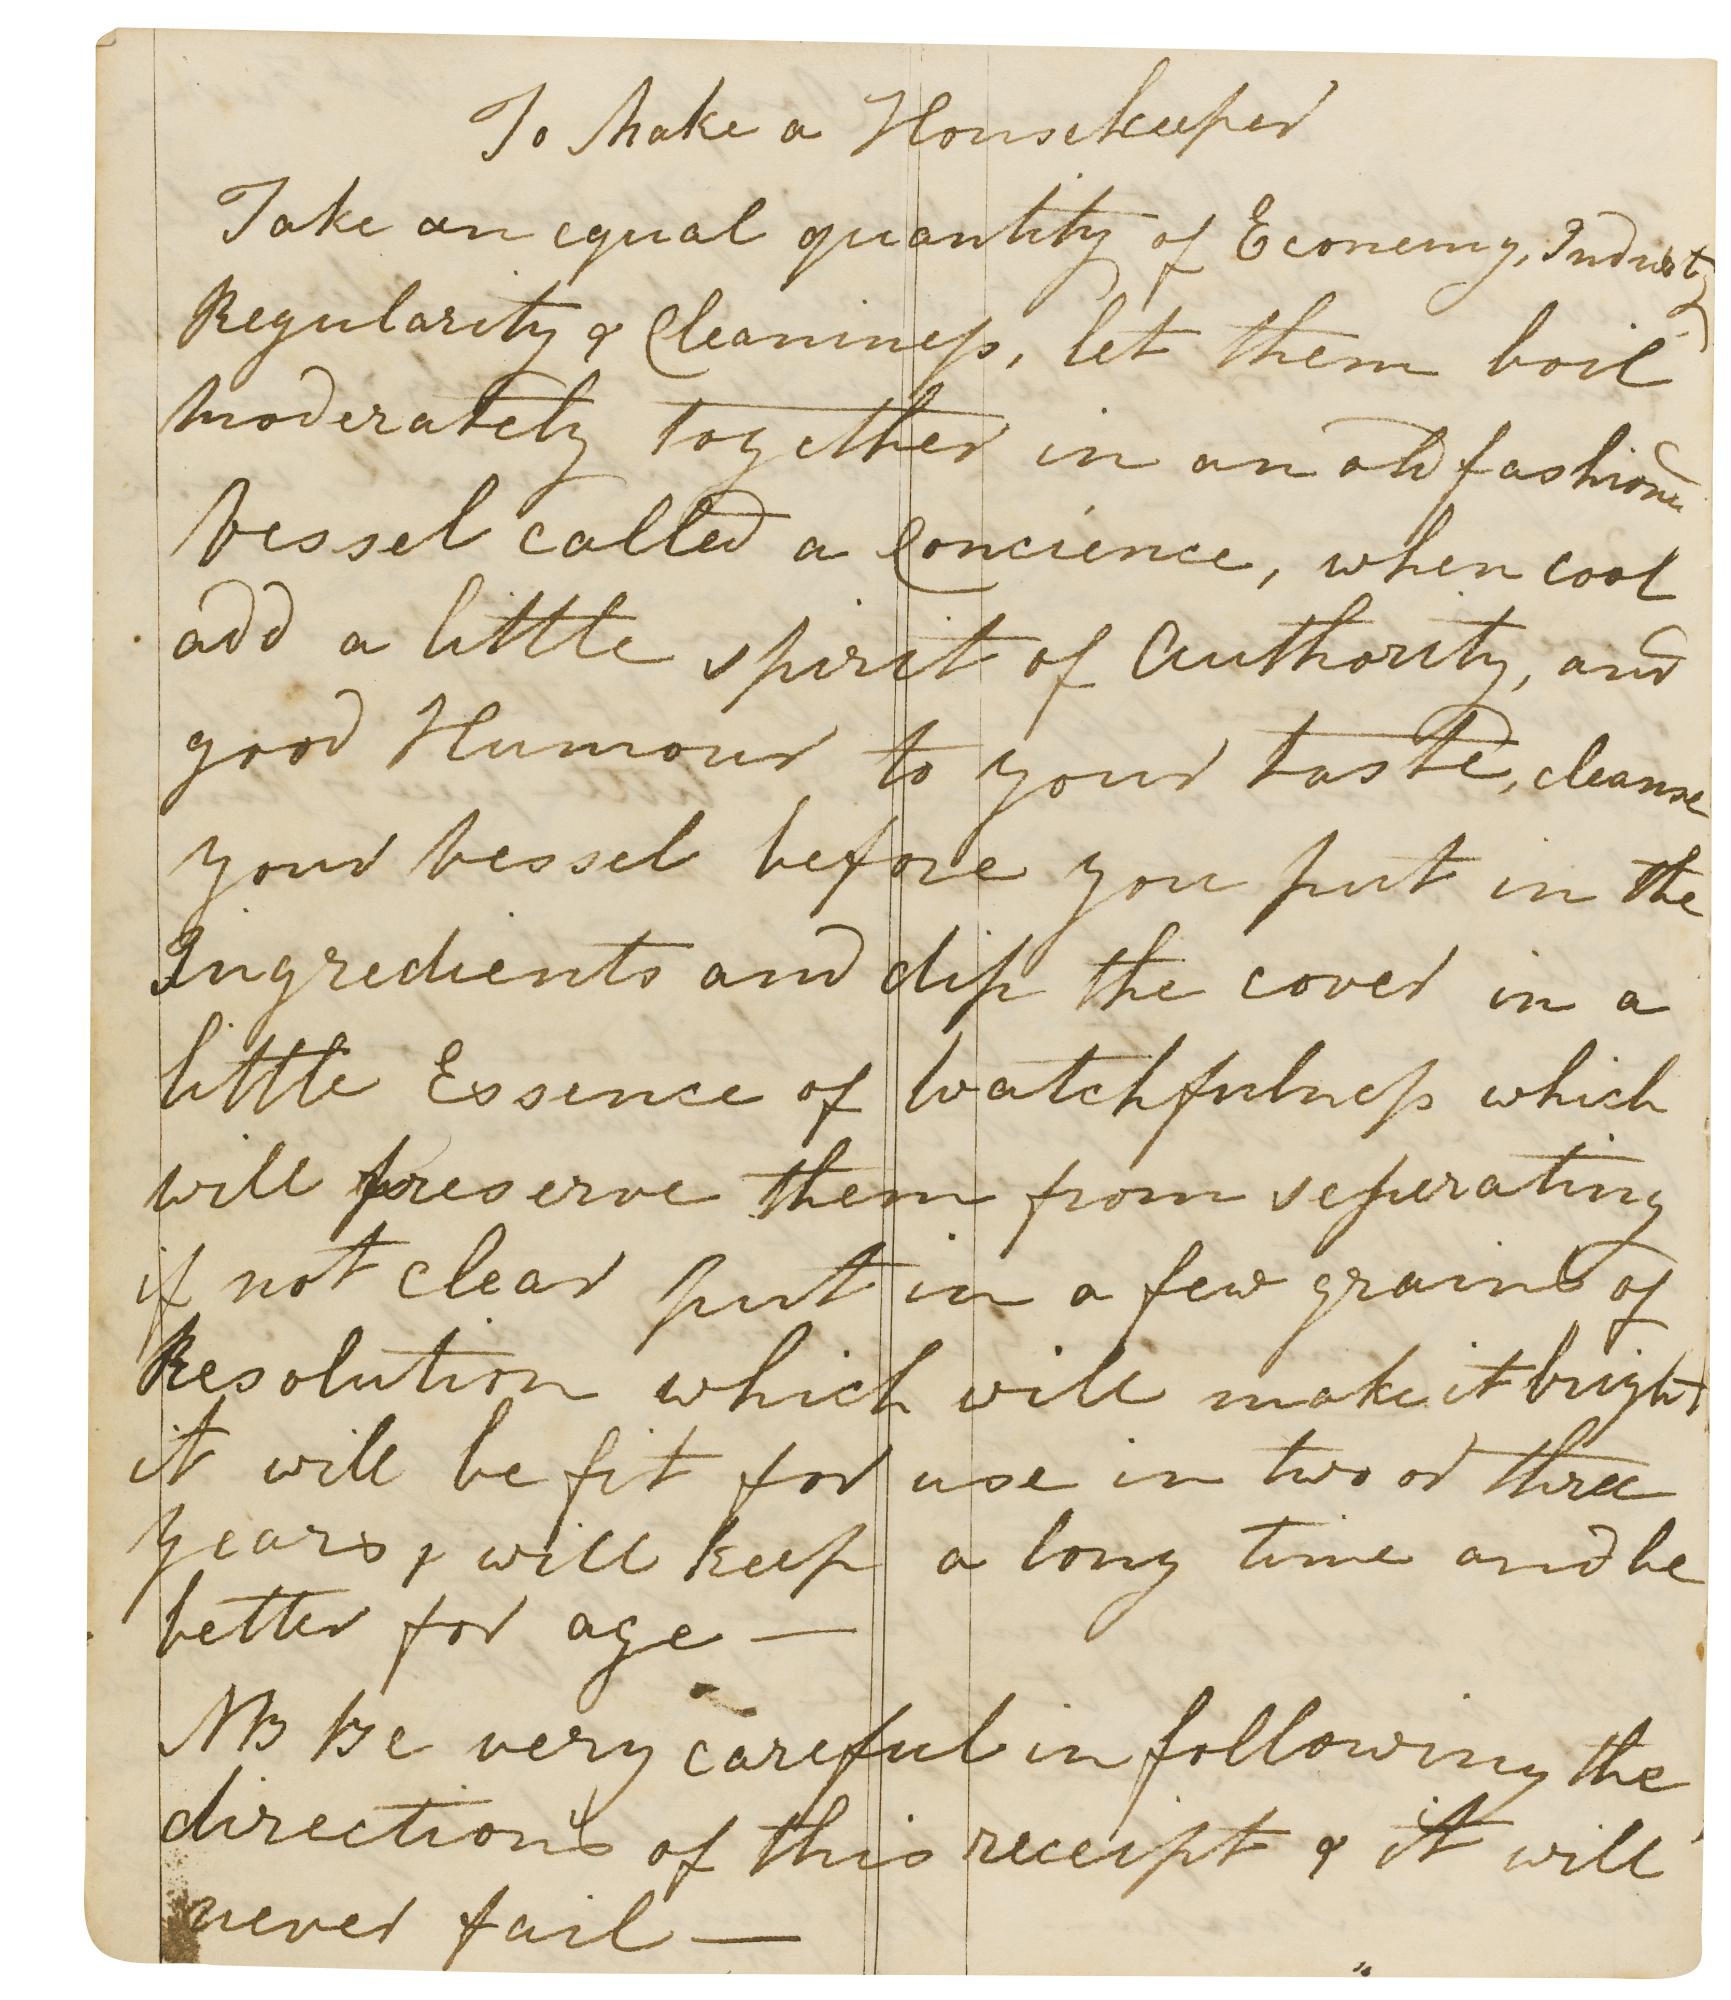 To Make a Housekeeper
Take an equal quantity of Economy, Industry
Regularity & Cleaniness, let them boil
moderately together in an old fashiond
Vessel called a Concience, when cool
add a little spirit of Authority, and
good Humour to your taste, cleanse
your vessel before you put in the
Ingredients and dip the cover in a
little Essence of Watchfulness which
will preserve them from seperating
if not clear put in a few grains of
Resolution which will make it bright
it will be fit for use in two or three
years, & will keep a long time and be
better for age —
NB Be very careful in following the
directions of this receipt & it will
never fail —